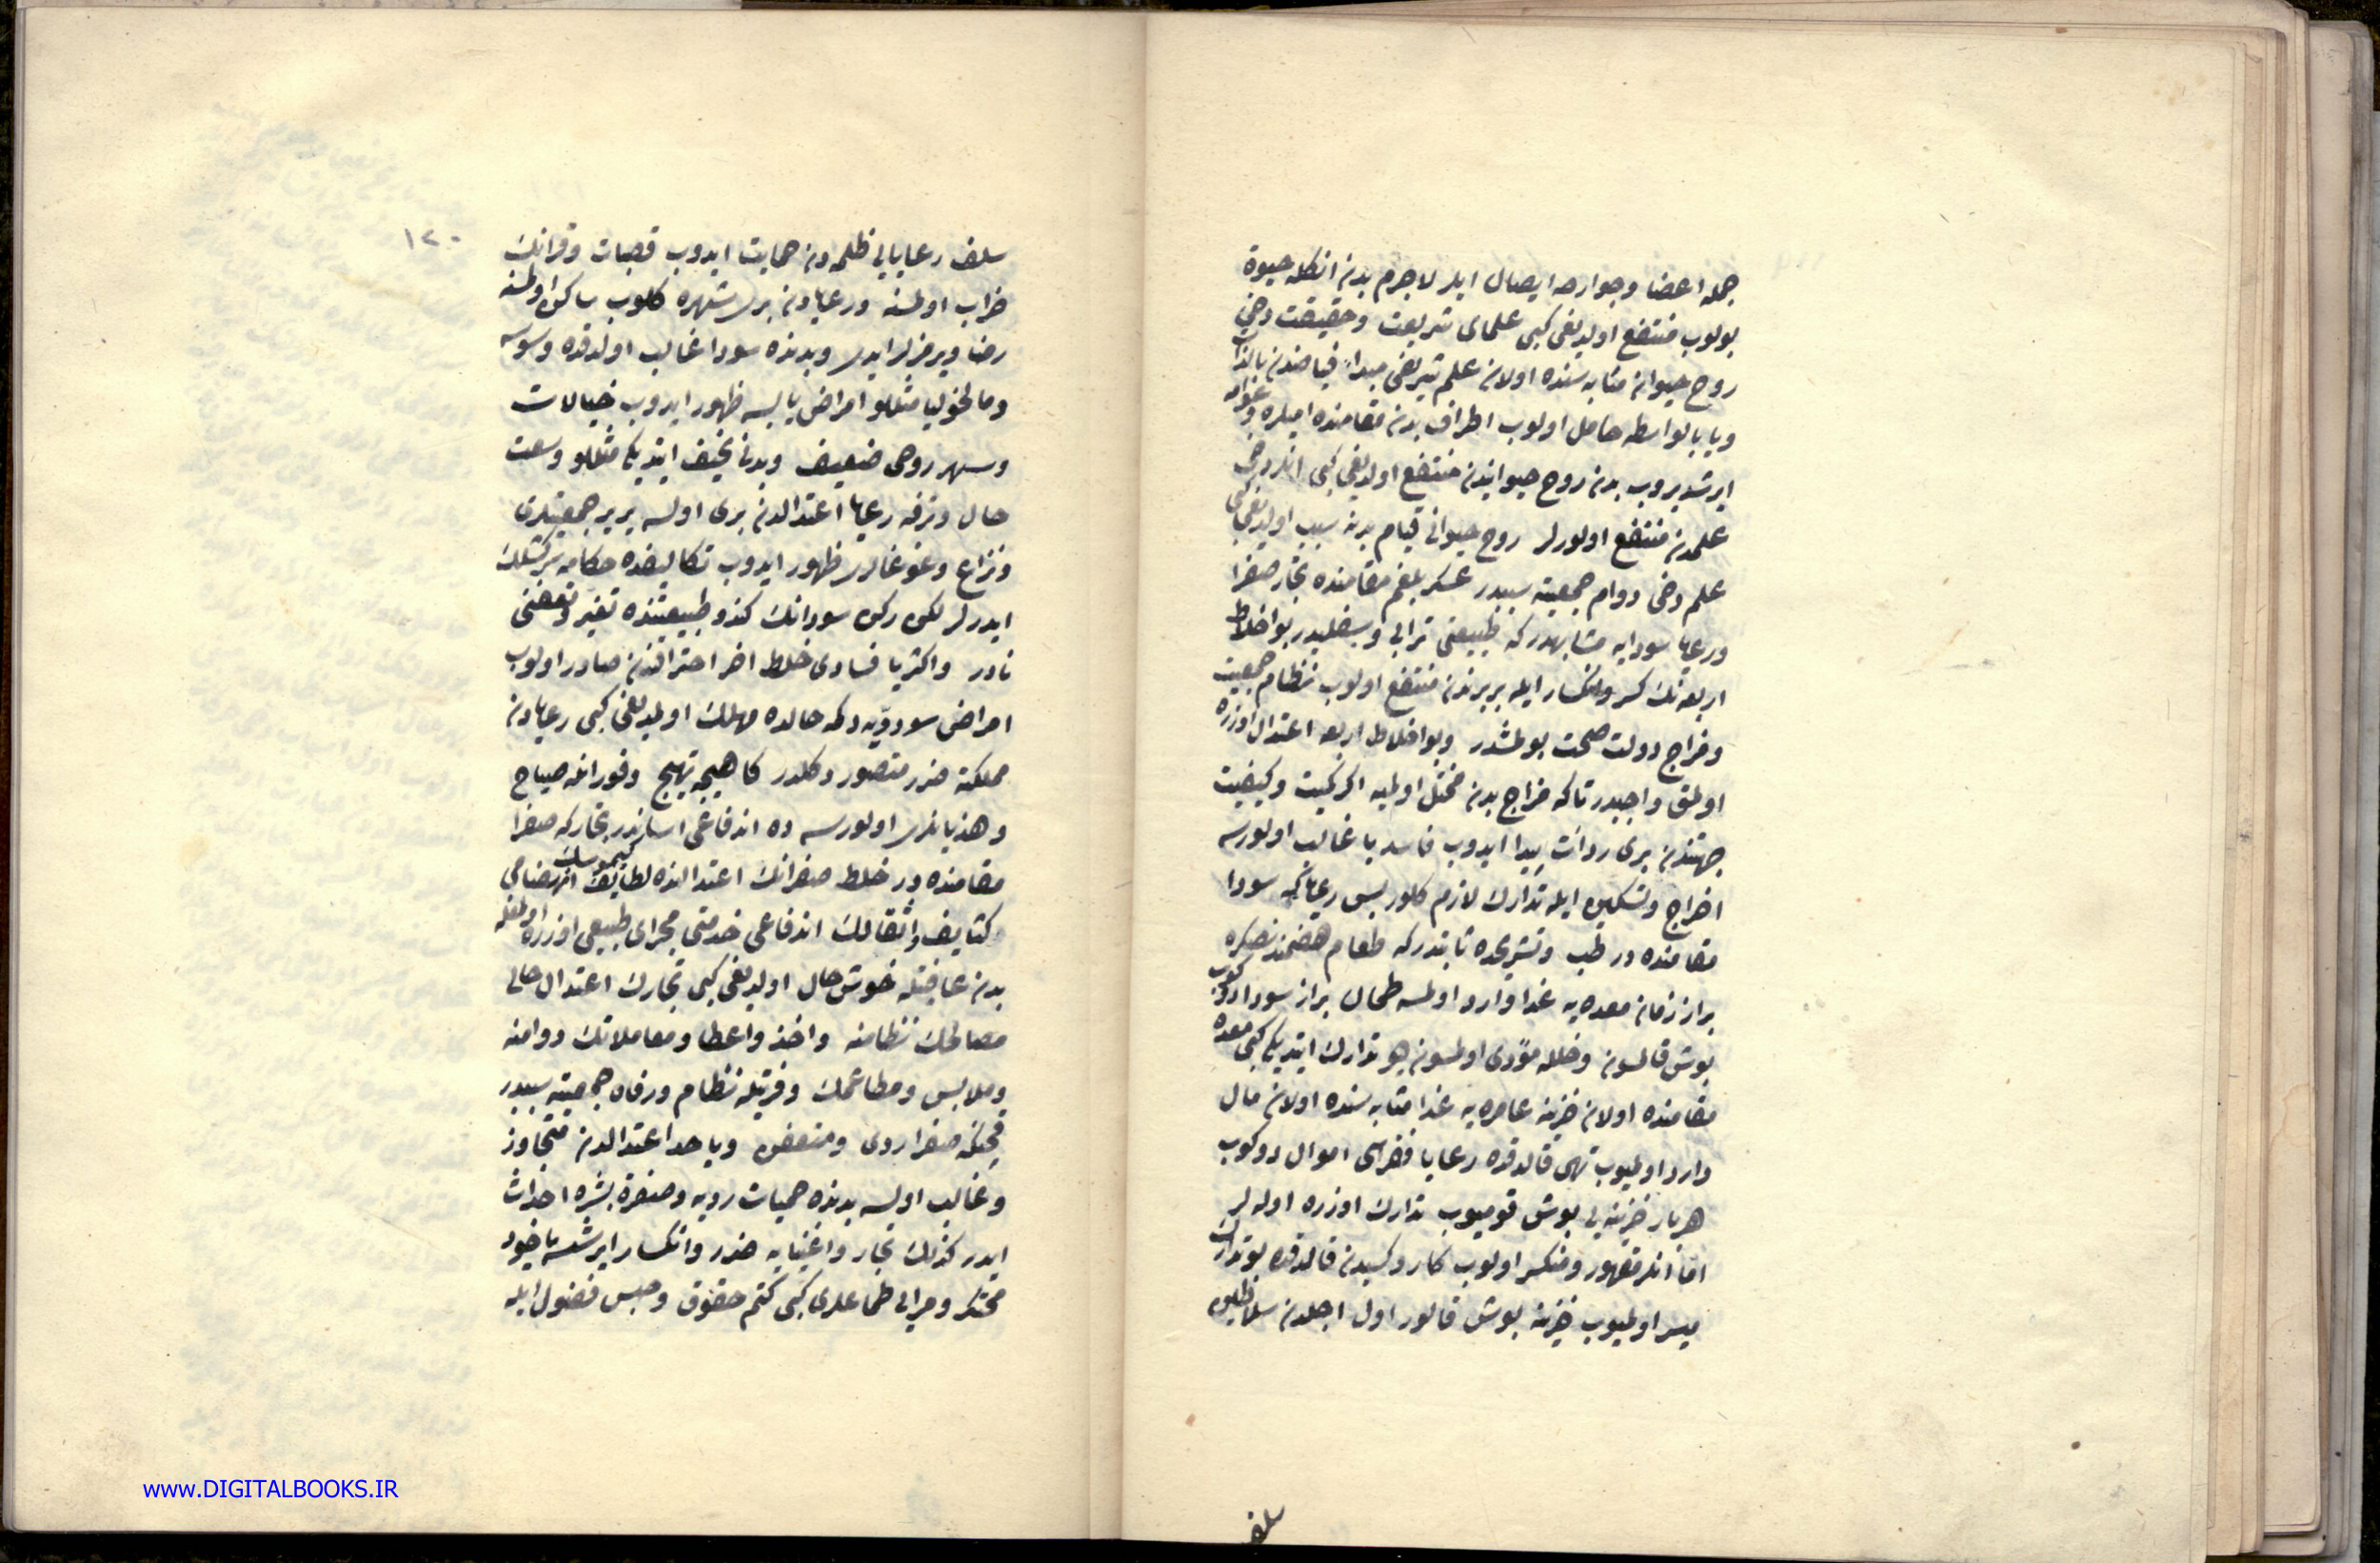 جمله اعضا وجوارحه ايصال ايلر لاجرم بدن انكله حيوة
بولوب منتفع اولديغى كبى علماى شريعت وحقيقت دخى
روح حيوان مثابه سنده اولان علم شريفى مبداء فياضدن بالذات
ويا بالواسطه حامل اولوب اطراف بدن مقامنده اميلره وعوامه
ايرشديروب بدن روح حيوانيدن منتفع اولديغى كبى انلر دخى
علمدن منتفع اولورلر روح حيوانى قيام بدنه سبب اولديغى كبى
علم دخى دوام جمعيته سببدر عسكر بلغم مقامنده تجار صفرا
ورعايا سودايه مشابهدر كه طبيعتى ترابى وسفليدر بو اخلاط
اربعه نك كسر وانكسار ايله بربرندن منتفع اولوب نظام جمعيت
ومزاج دولت صحت بولمشدر وبو اخلاط اربعه اعتدال اوزره
اولمق واجبدر تاكه مزاج بدن مختل اولميه اكر كميت وكيفيت
جهتندن برى ردائت پيدا ايدوب فاسد يا غالب اولورسه
اخراج وتسكين ايله تدارك لازم كلور پس رعايا كه سودا
مقامنده در طب وتشريحده ثابتدر كه طعام هضمندنصكره
براز زمان معده يه غذا وارد اولمسه طحال براز سودا دوكوب
بوش قالسون وخلله مؤدى اولمسون ديو تدارك ايتديكى كبى معده
مقامنده اولان خزينه عامره يه غذا مثابه سنده اولان مال
وارد اولميوب تهى قالدقده رعايا فقراسى اموال دوكوب
هر بار خزينه يى بوش قوميوب تدارك اوزره اوله لر
اما انلر مقهور ومنكسر اولوب كار وكسبدن قالدقده بو تدارك
ميسر اولميوب خزينه بوش قالور اول اجلدن سلاطين
سلف
١٢٠
سلف رعايايى ظلمه دن حمايت ايدوب قصبات وقرانك
خراب اولمسنه ورعايادن برى شهره كلوب ساكن اولمسنه
رضا ويرمزلر ايدى وبدنده سودا غالب اولدقده وسوسه
وماليخوليا مثللو امراض يابسه ظهور ايدوب خيالات
وسهر روحى ضعيف وبدنى نحيف ايتديكى مثللو وسعت
حال وترفه رعايا اعتدالدن برى اولسه يرير جمعيتلرى
ونزاع وغوغالرى ظهور ايدوب تكاليفده حكامه سركشلك
ايدرلر لكن ركن سودانك كندو طبيعتنده تغير وتعفنى
نادر واكثريا فسادى خلط اخر احتراقندن صادر اولوب
امراض سوديه دكمه حالده مهلك اولمديغى كبى رعايادن
مملكته ضرر متصور دكلدر كاهيجه تهيج وفورانله صياح
وهذيانلرى اولورسه ده اندفاعى اساندر تجار كه صفرا
مقامنده در خلط صفرانك اعتدالنده لطايف كيموسك انهضامى
وكثايف واثقالك اندفاعى خدمتى مجراى طبيعى اوزره اولمغله
بدن عافيتله خوش حال اولديغى كبى تجارك اعتدال حالى
مصالحك نظامنه واخذ واعطا ومعاملاتك دوامنه
وملابس ومطاعمك وفرتيله نظام ورفاه جمعيته سببدر
قچنكه صفرا ردى ومتعفن ويا حد اعتدالدن متجاوز
وغالب اولسه بدنده حميات رديه وصفرة بشره احداث
ايدر كذلك تجار واغنيايه ضرر وانكسار ايرشسه ياخود
محتكر ومرابى طماعلرى كبى كتم حقوق وحبس فضول ايله
www.DIGITALBOOKS.IR